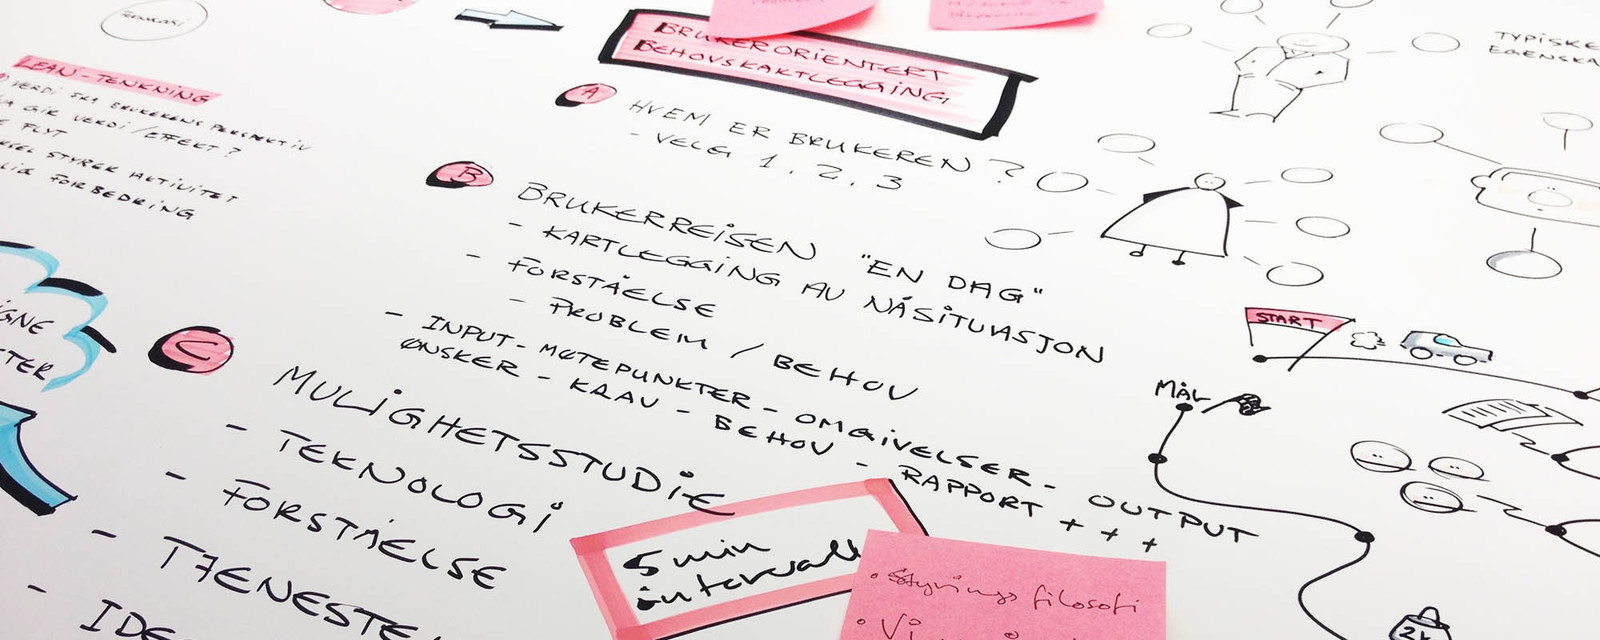 TEKNOLOGI
LEAN-TENKNING
VERDI FRA BRUKERENS PERSPEKTIV
GIR VERDI/EFFEKT?
FLYT
STYRER AKTIVITET
FORBEDRING
BRUKERORIENTERT
BEHOVSKARTLEGGING
A
HVEM ER BRUKEREN?
- VELG 1. 2. 3
B
BRUKERREISEN "EN DAG"
- KARTLEGGING AV NÅSITUASJON
- FORSTÅELSE
- PROBLEM / BEHOV
- INPUT - MØTEPUNKTER - OMGIVELSER - OUTPUT
ØNSKER - KRAV - BEHOV - RAPPORT +++
C
MULIGHETSSTUDIE
- TEKNOLOGI
- FORSTÅELSE
- TJENESTE
- IDE
5 min
intervall
• Styrings filosofi
• Vi
TYPISKE
EGENSKA
START
MÅL